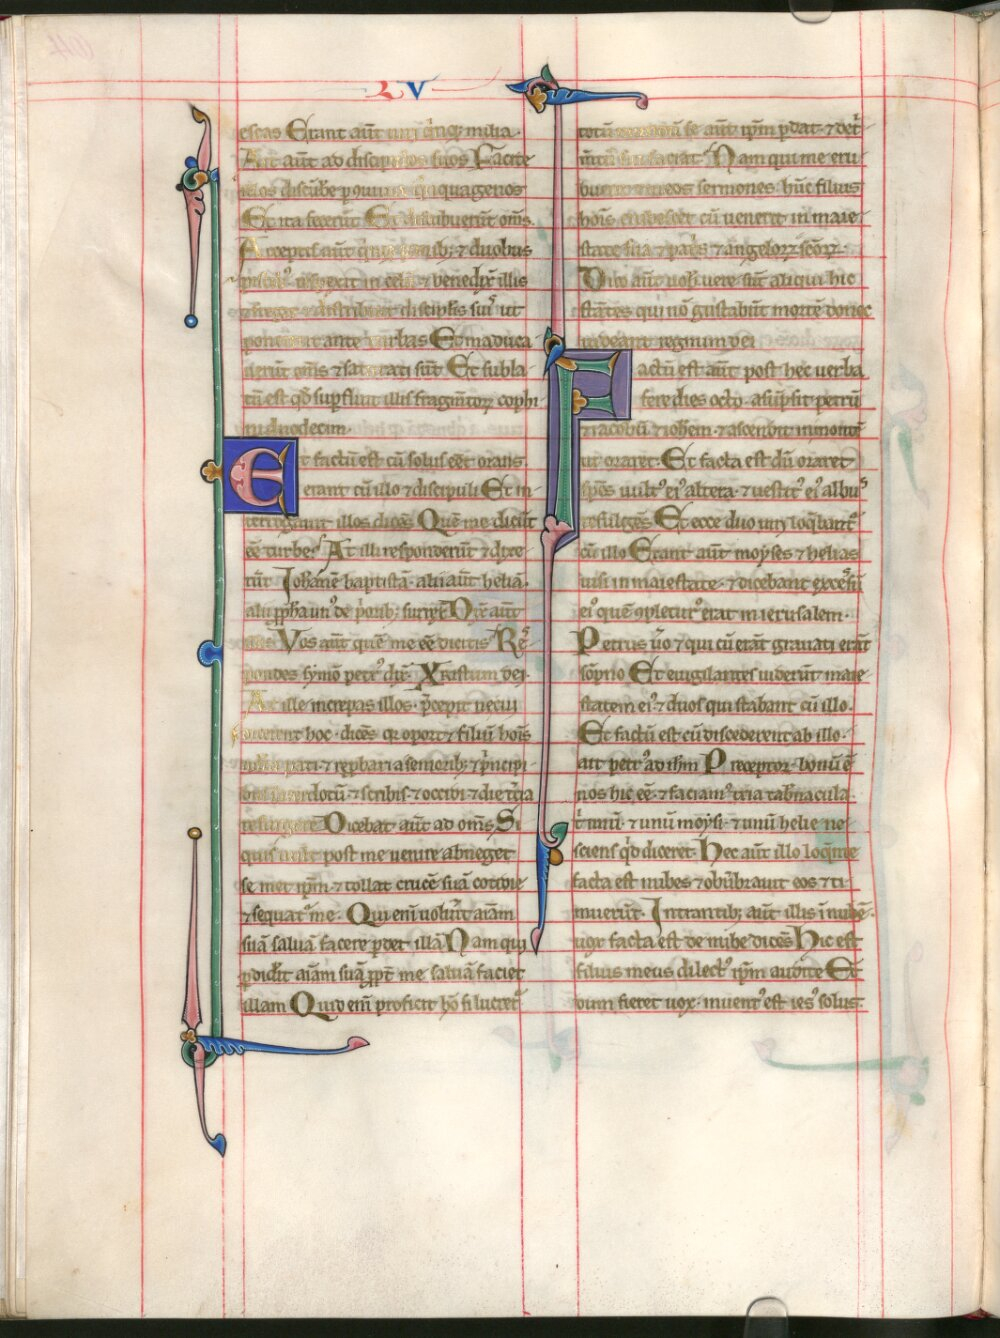 L V
escas Erant aut͛ uiri milia
Ait aut͛ ad discipulos suos Facite
illos discūbe p
Et ita fecerūt Et discubuerūt om̄s
Acceptis aūt panib; ⁊ duobus
piscib⁹ respexit in celū ⁊ benedix̄ illis
⁊ fregit ⁊ distribuit discipl̄is suis ut
ponerent ante turbas Et māduca
uerūt om̄s ⁊ saturati sūt Et subla
tū est qd̄ supfluit illis fragm̄toꝝ cophi
ni duodecim
Et factū est cū solus eēt orans
erant cū illo ⁊ discipuli Et in
terrogauit illos dicēs Quē me dicūt
eē turbe At illi responderūt ⁊ dixe
rūt Johānē baptistā alii aūt heliā
alii ꝓpha un⁹ de p̄orib; surrex̄ Dix̄ aūt
illis Vos aūt quē me eē dicitis Rēs
pondēs symō petr⁹ dix̄ Xristum dei
At ille increpās illos p̄cepit ne cui
dicerent hoc dicēs qr oport&#x0304; filiū hoīs
multa pati ⁊ repbari a seniorib; ⁊ p̄ncipi
bus sacerdotū ⁊ scribis ⁊ occidi ⁊ die t̄cia
resurgere Dicebat aūt ad om̄s Si
quis uult post me uenire abneget
se met ip̄m ⁊ tollat crucē suā cotidie
⁊ sequat⁹ me Qui eni uolūit aīam
suā saluā facere pdet illā Nam qui
pdidit aīam suā ꝓpt̄ me saluā faciet
illam Quid eni proficit hō si lucret͛
totū mundū se aūt ip̄m pdat ⁊ det͛
mtū sui faciat Nam qui me eru
buerit ⁊ meos sermones hūc filius
hoīs erubescet cū uenerit in maie
state sua ⁊ pat̄s ⁊ angeloꝝ scōꝝ
Dico aūt uob̄ uere sūt aliqui hic
stātes qui nō gustabūt mortē donec
uideant regnum dei
Factū est aūt post hec uerba
fere dies octo assūpsit petrū
⁊ iacobū ⁊ ioh̄em ⁊ ascendit in montē
ut oraret Et facta est dū oraret
spēs uult⁹ ei⁹ altera ⁊ uestit⁹ ei⁹ albus
refulgēs Et ecce duo uiri loq̄bant͛
cū illo Erant aūt moyses ⁊ helias
uisi in maiestate ⁊ dicebant excessū
ei⁹ quē ꝯpletur⁹ erat in ierusalem
Petrus ūo ⁊ qui cū erāt grauati erāt
sōpno Et euigilantes uiderūt maie
statem ei⁹ ⁊ duos qui stabant cū illo
Et factū est cū discederent ab illo
ait petr⁹ ad ihm Preceptor bonū ē
nos hic eē ⁊ faciam⁹ tria tab̄nacula
t̄ unū ⁊ unū moysi ⁊ unū helie ne
sciens qd̄ diceret Hec aūt illo loq̄nte
facta est nubes ⁊ obūbrauit eos ⁊ ti
muerūt Jntrantib; aūt illis ī nubē
uox facta est de nube dicēs Hic est
filius meus dilect⁹ ip̄m audite Et
dum fieret uox inuent⁹ est ies⁹ solus